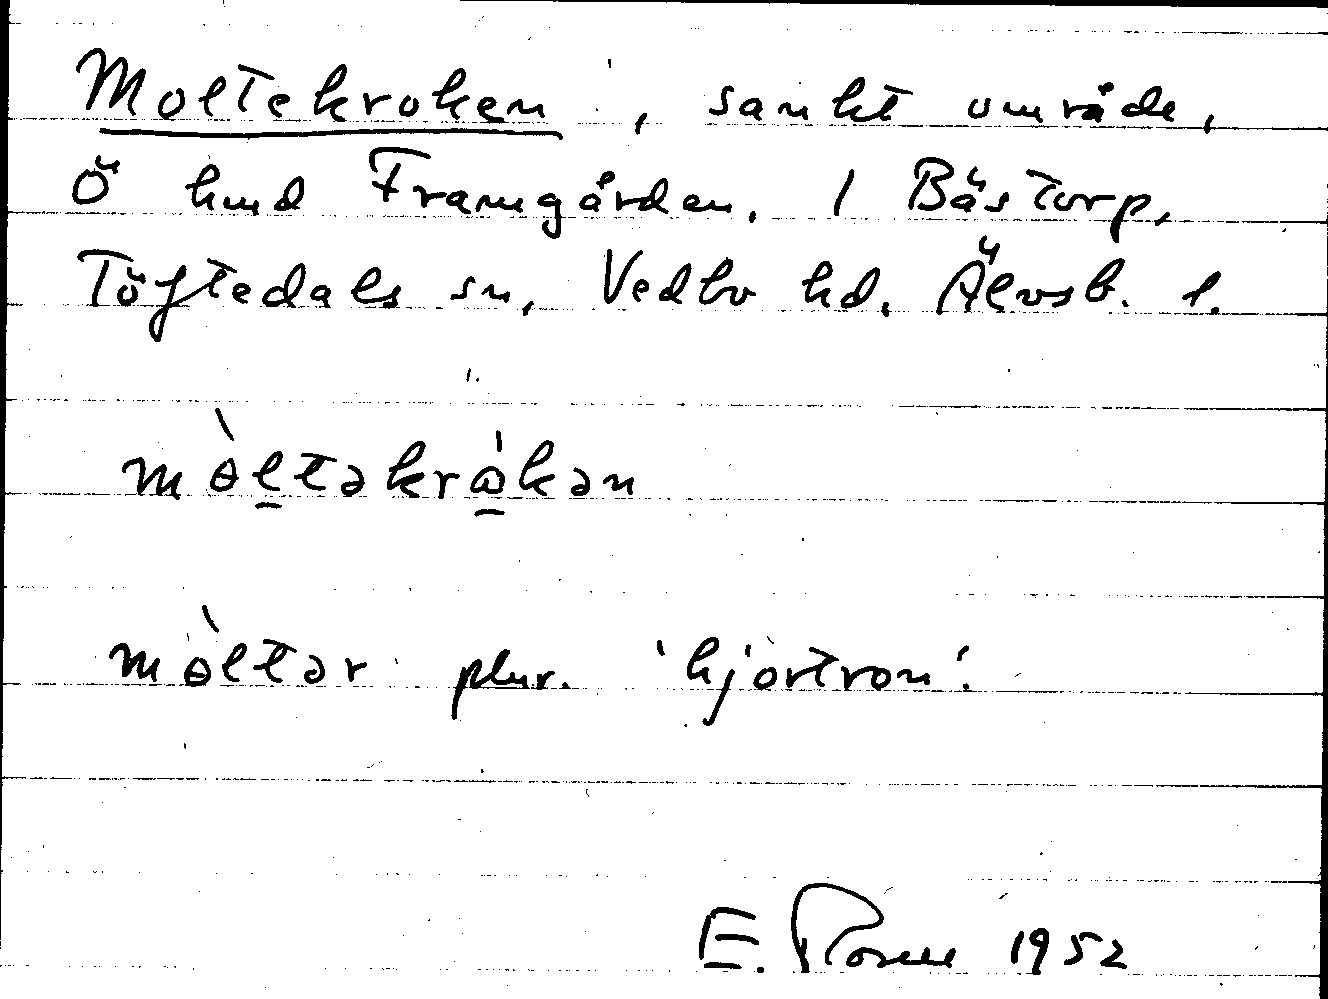 Moltekroken, sankt område,
Ö hmd Framgården, 1 Bästorp,
Töftedals sn, Vedbo hd, Älvsb. l.
mɵ̀ltəkrɷ̀kən
mɵ̀ltər plur. 'hjortron'.
E. 1952